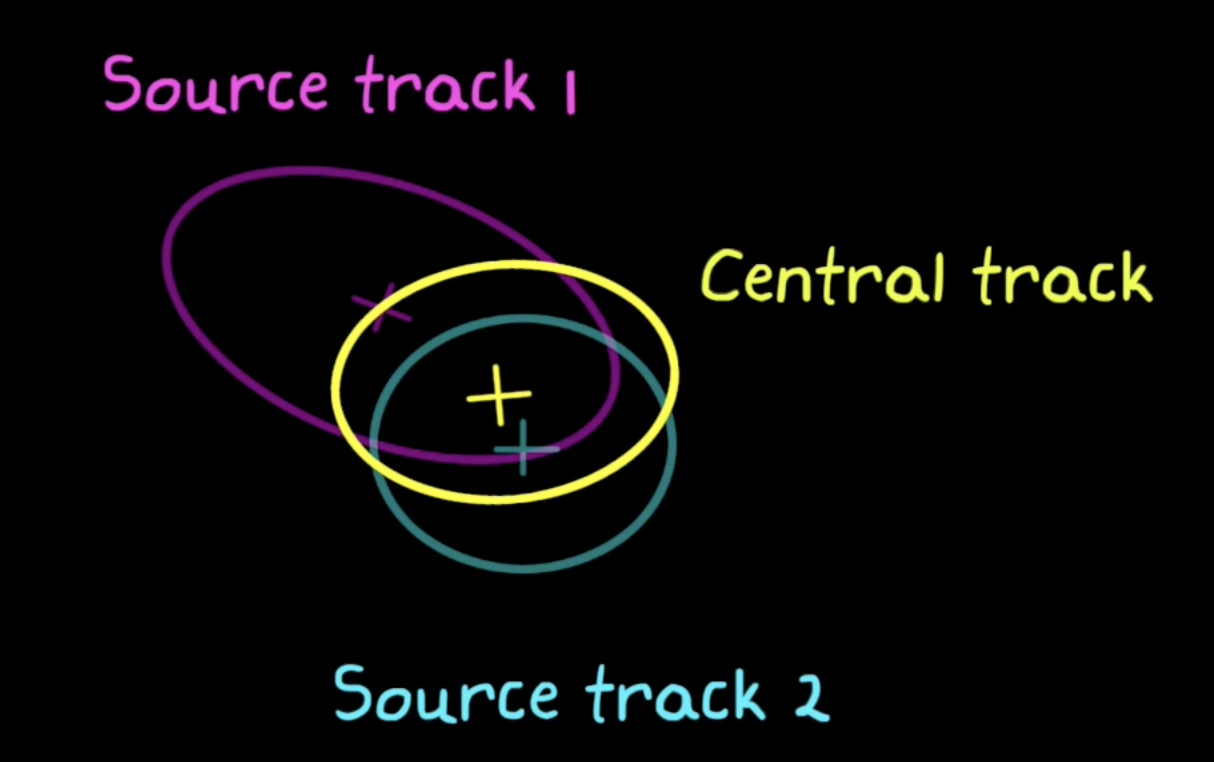 Source track 1
Central track
Source track 2